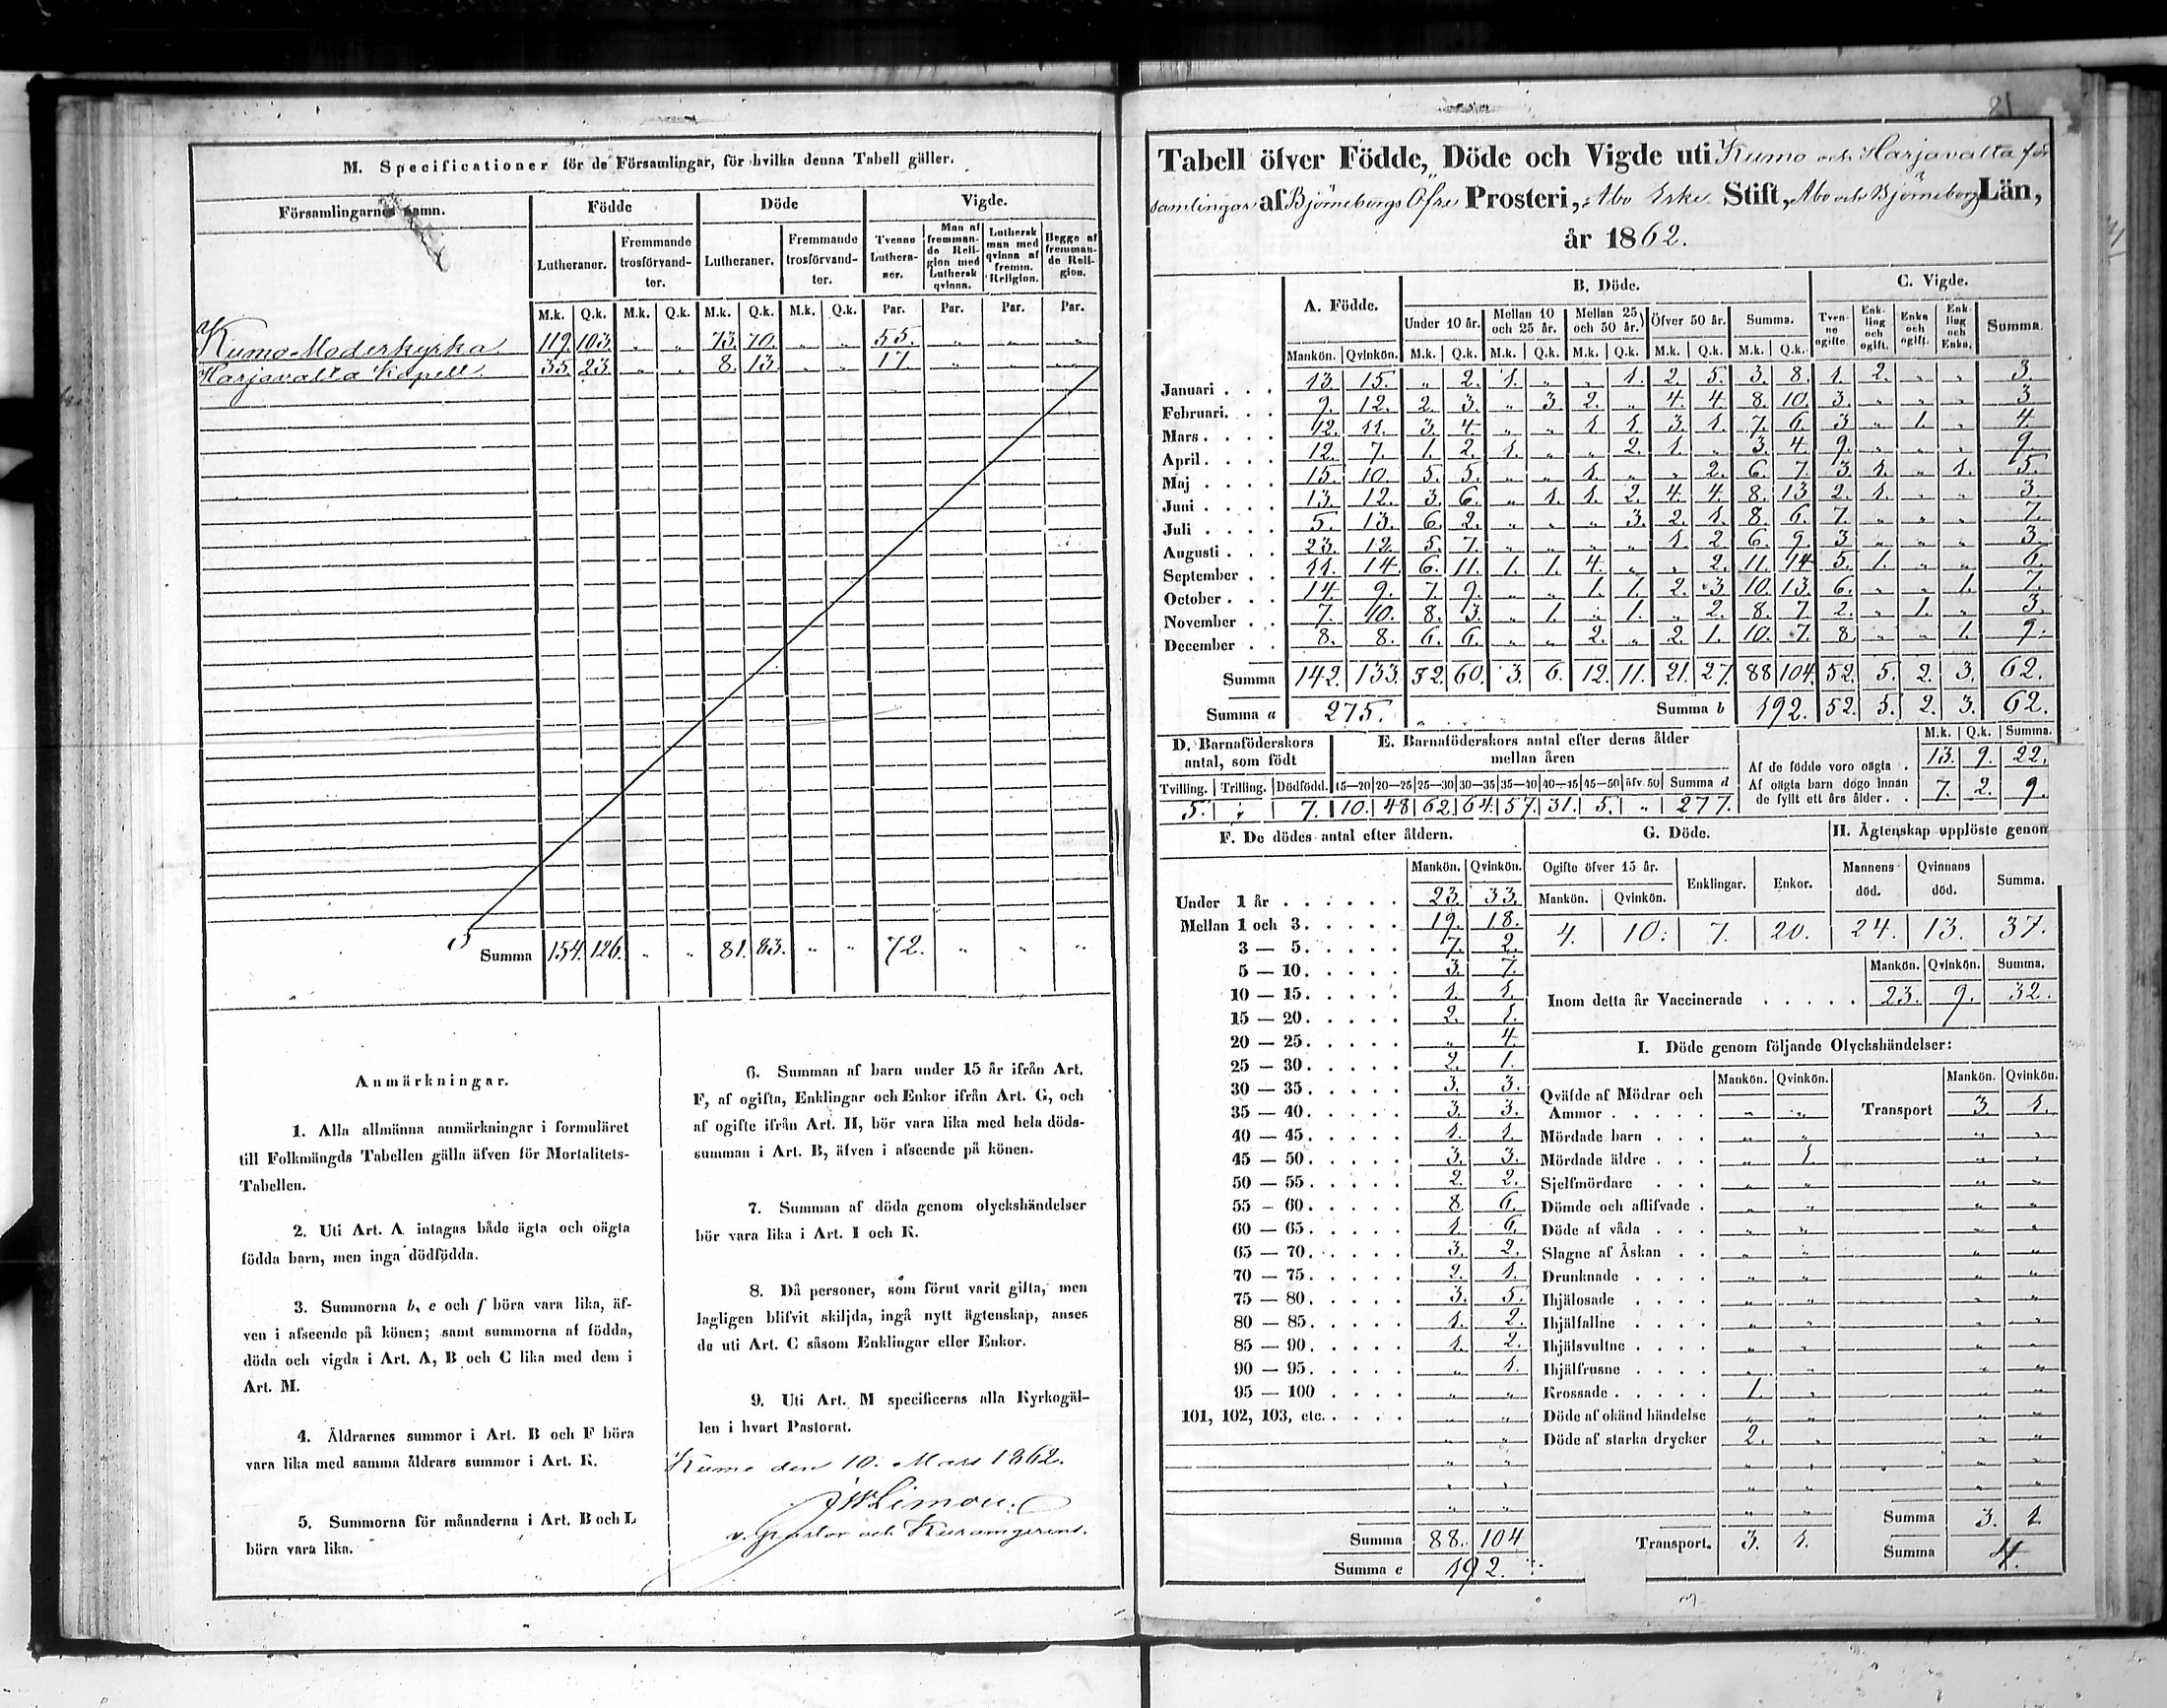 M. Specificationer för de Församlingar, för hvilka denna Tabell gäller.
Församlingarnes namn. Födde Döde Vigde.
Lutheraner. Fremmande trosförvandter. Lutheraner. Fremmande trosförvandter. Tvenne Lutheraner. Man af fremmande Religion med Luthersk qvinna. Luthersk man med qvinna af fremm. Religion. Begge af fremmande Religion.
M.k. Q.k. M.k. Q.k. M.k. Q.k. M.k. Q.k. Par. Par. Par. Par.
Kumo Moderkyrka 119. 103. „ „ 73. 70. „ „ 55. „ „ „
Harjavalta Kapell. 35. 23. „ „ 8. 13. „ „ 17. „ „ „
Summa 154. 126. „ „ 81. 83. „ „ 72. „ „ „
Anmärkningar.
1. Alla allmänna anmärkningar i formuläret
till Folkmängds Tabellen gälla äfven för Mortalitets-
Tabellen.
2. Uti Art. A intagas både ägta och oägta
födda barn, men inga dödfödda.
3. Summorna b, e och f böra vara lika, äf-
ven i afseende på könen; samt summorna af födda,
döda och vigda i Art. A, B och C lika med dem i
Art. M.
4. Åldrarnes summor i Art. B och F böra
vara lika med samma åldrars summor i Art. K.
5. Summorna för månaderna i Art. B och L
böra vara lika.
6. Summan af barn under 15 år ifrån Art.
F, af ogifta, Enklingar och Enkor ifrån Art. G, och
af ogifte ifrån Art. H, bör vara lika med hela döds-
summan i Art. B, äfven i afseende på könen.
7. Summan af döda genom olyckshändelser
bör vara lika i Art. I och K.
8. Då personer, som förut varit gifta, men
lagligen blifvit skiljda, ingå nytt ägtenskap, anses
de uti Art. C såsom Enklingar eller Enkor.
9. Uti Art. M specificeras alla Kyrkogäl-
len i hvart Pastorat.
Kumo den 10. Mars 1862.
v. pastor och
21
Tabell öfver Födde, Döde och Vigde uti Kumo och Harjavalta för
samlingar af Björneborgs Öfre Prosteri, Åbo Erke Stift, Åbo och Björneborgs Län,
år 1862.
A. Födde. B. Döde. C. Vigde.
Under 10 år. Mellan 10 och 25 år. Mellan 25 och 50 år. Öfver 50 år. Summa. Tvenne ogifte. Enkling och ogift. Enka och ogift. Enkling och Enka. Summa.
Mankön. Qvinkön. M.k. Q.k. M.k. Q.k. M.k. Q.k. M.k. Q.k. M.k. Q.k.
Januari . . . 13. 15. „ 2. 1. „ „ 1. 2. 5. 3. 8. 1. 2. „ „ 3.
Februari. . . 9. 12. 2. 3. „ 3. 2. „ 4. 4. 8. 10. 3. „ „ „ 3
Mars . . . . 12. 11. 3. 4. „ „ 1. 1. 3. 1. 7. 6. 3 „ 1. „ 4
April. . . . 12. 7. 1. 2. 1. „ „ 2. 1. „ 3. 4. 9. „ „ „ 9.
Maj . . . . 15. 10. 5. 5. „ „ 1. „ „ 2. 6. 7. 3 1. „ 1. 5.
Juni . . . . 13. 12. 3. 6. „ 1. 1. 2. 4. 4. 8. 13 2. 1. „ „ 3.
Juli . . . . 5. 13. 6. 2. „ „ „ 3. 2. 1. 8. 6. 7. „ „ „ 7.
Augusti . . . 23. 12. 5. 7. „ „ „ „ 1. 2. 6. 9. 3 „ „ „ 3.
September . . 11. 14. 6. 11. 1. 1. 4. „ „ 2. 11. 14 5. 1. „ „ 6.
October . . . 14. 9. 7. 9. „ „ 1. 1. 2. 3 10. 13. 6. „ „ 1. 7.
November . . 7. 10. 8. 3. „ 1. „ 1. „ 2. 8. 7. 2. „ 1. „ 3.
December . . 8. 8. 6. 6. „ „ 2. „ 2. 1. 10. 7. 8 „ „ 1. 9.
Summa 142. 133. 52. 60. 3. 6. 12. 11. 21. 27. 88 104. 52. 5. 2. 3. 62.
Summa a 275. Summa b 192. 52. 5. 2. 3. 62.
D. Barnaföderskors antal, som födt E. Barnaföderskors antal efter deras ålder mellan åren
M.k. Q.k. Summa.
Tvilling. Trilling. Dödfödd. 15—20 20—25 25—30 30—35 35—40 40—45 45—50 öfv. 50 Summa d
5. „ 7. 10. 48 62. 64. 57. 31. 5. „ 277.
Af de födde voro oägta . 13. 9. 22.
Af oägta barn dogo innan de fyllt ett års ålder. . 7. 2. 9.
F. De dödes antal efter åldern.
Mankön. Qvinkön.
Under 1 år . . . . . . 23. 33.
Mellan 1 och 3. . . . . 19. 18.
3 — 5. . . . . 7. 2.
5 — 10. . . . . 3. 7.
10 — 15. . . . . 1. 1.
15 — 20. . . . . 2. 1.
20 — 25. . . . . „ 4.
25 — 30. . . . . 2. 1.
30 — 35. . . . . 3. 3.
35 — 40. . . . . 3. 3.
40 — 45. . . . . 1. 1.
45 — 50. . . . . 3. 3.
50 — 55. . . . . 2. 2.
55 — 60. . . . . 8. 6.
60 — 65. . . . . 1. 6.
65 — 70. . . . . 3. 2.
70 — 75. . . . . 2. 1.
75 — 80. . . . . 3. 5.
80 — 85. . . . . 1. 2.
85 — 90. . . . . 1. 2.
90 — 95. . . . . „ 1.
95 — 100 . . . . „ „
101, 102, 103, etc. . . . . „ „
Summa 88. 104
Summa e 192.
G. Döde. H. Ägtenskap upplöste genom
Ogifte öfver 15 år. Enklingar. Enkor. Mannens död. Qvinnans död. Summa.
Mankön. Qvinkön.
4. 10. 7. 20. 24. 13. 37.
Mankön. Qvinkön. Summa.
Inom detta år Vaccinerade . . . . . 23. 9. 32.
I. Döde genom följande Olyckshändelser:
Mankön. Qvinkön. Mankön. Qvinkön.
Qväfde af Mödrar och Ammor . . . . . „ „ Transport 3. 1.
Mördade barn . . . „ „ „ „
Mördade äldre . . . „ 1. „ „
Sjelfmördare . . . „ „ „ „
Dömde och aflifvade . „ „ „ „
Döde af våda . . . „ „ „ „
Slagne af Åskan . . „ „ „ „
Drunknade . . . . „ „ „ „
Ihjälosade . . . . „ „ „ „
Ihjälfallne . . . . „ „ „ „
Ihjälsvultne . . . . „ „ „ „
Ihjälfrusne . . . . „ „ „ „
Krossade . . . . . 1. „ „ „
Döde af okänd händelse „ „ „ „
Döde af starka drycker 2. „ „ „
Summa 3. 1
Transport. 3. 1. Summa 4.